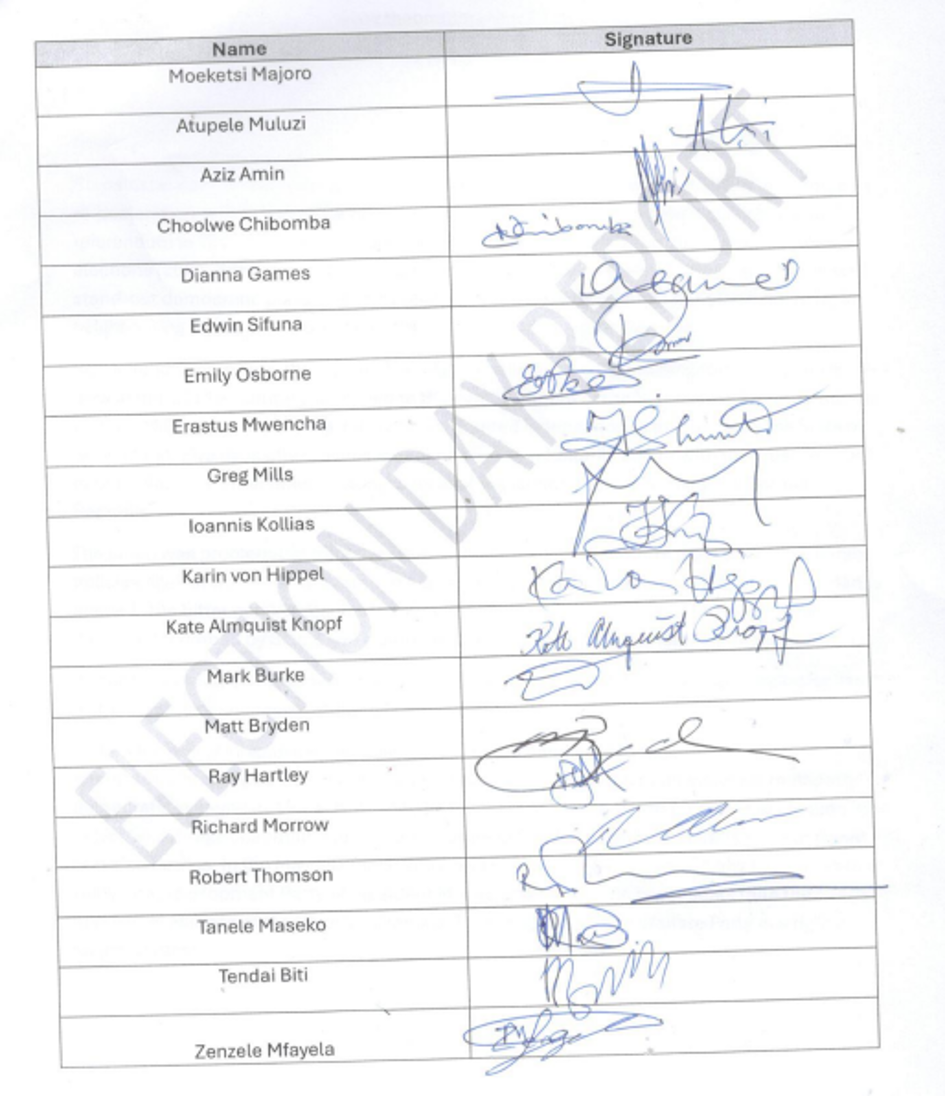 Name Signature
Moeketsi Majoro
Atupele Muluzi
Aziz Amin
Choolwe Chibomba
Dianna Games
Edwin Sifuna
Emily Osborne
Erastus Mwencha
Greg Mills
Ioannis Kollias
Karin von Hippel
Kate Almquist Knopf Kate Almquist Knopf
Mark Burke
Matt Bryden
Ray Hartley
Richard Morrow
Robert Thomson
Tanele Maseko
Tendai Biti
Zenzele Mfayela
ELECTION DAY REPORT